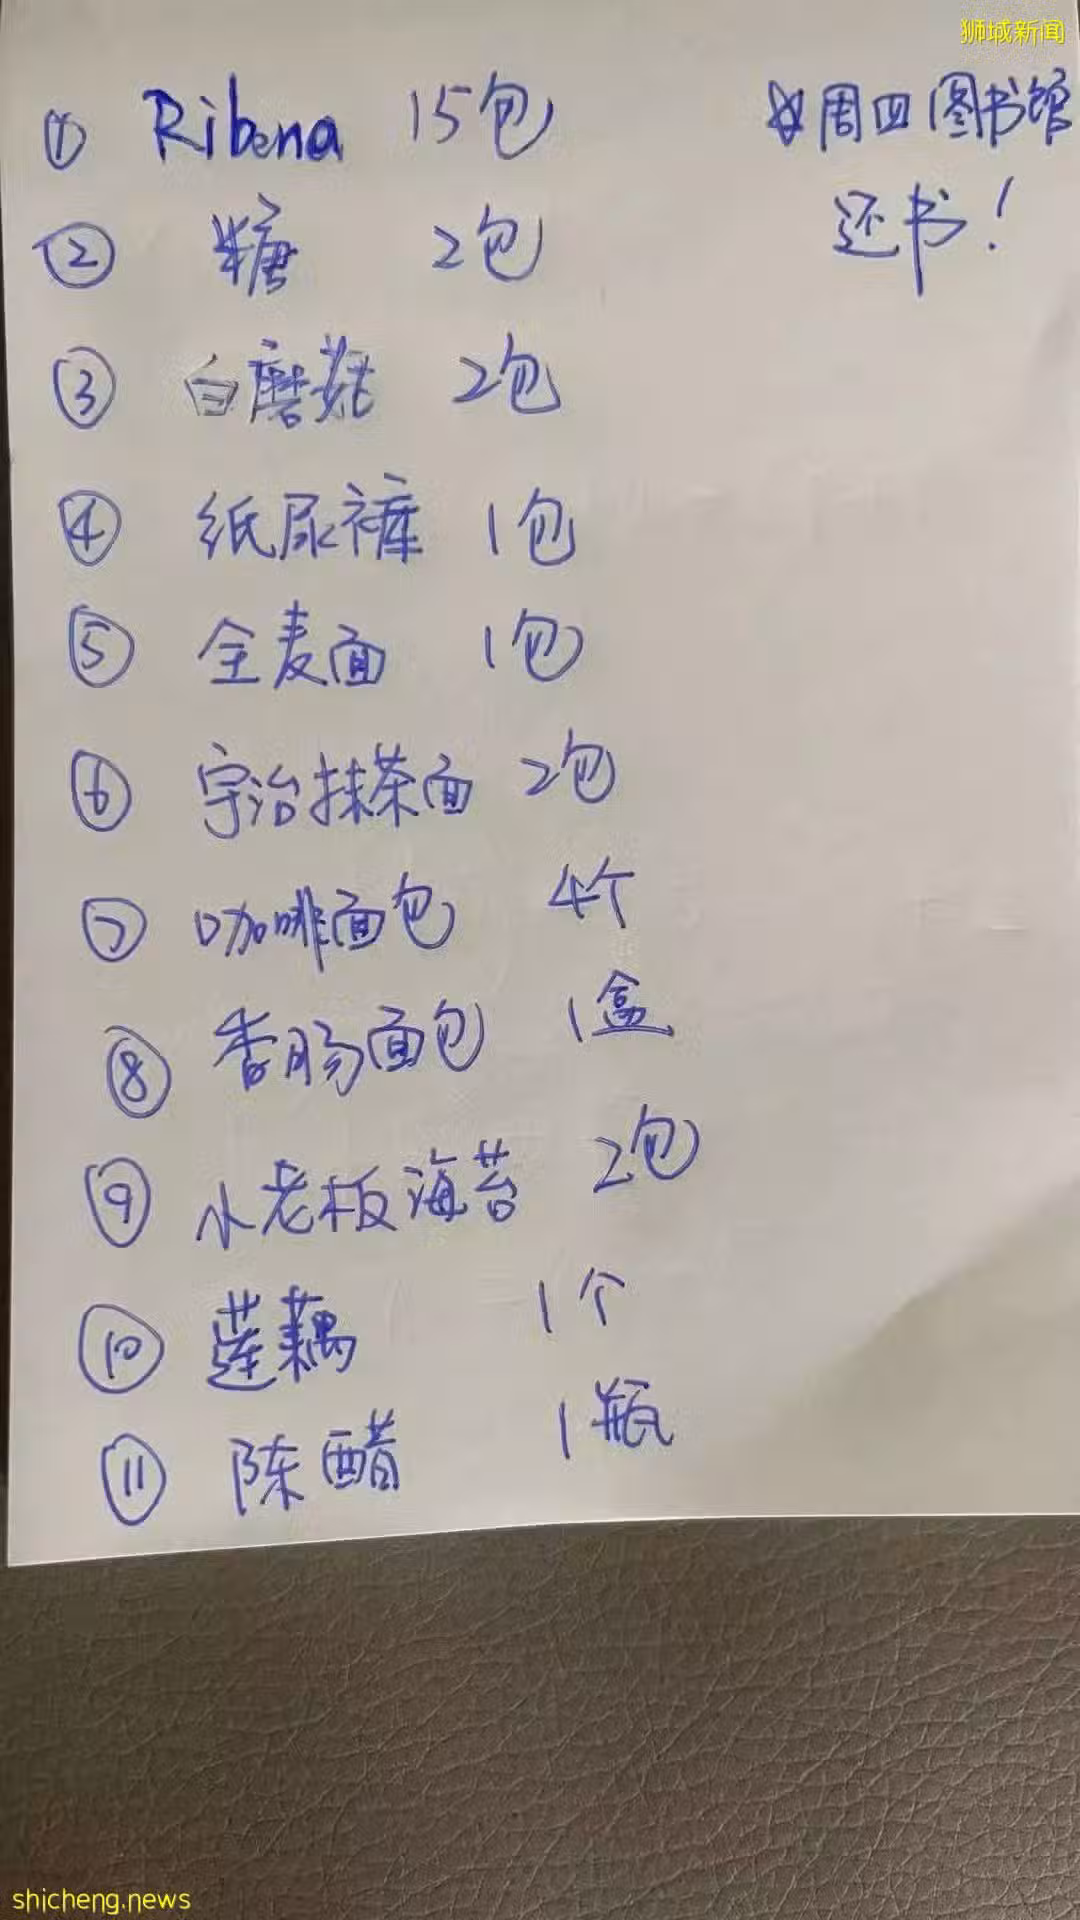 狮城新闻
① Ribena 15包
☆周四图书馆
还书！
② 糖 2包
③ 白磨菇 2包
④ 纸尿裤 1包
⑤ 全麦面 1包
⑥ 宇治抹茶面 2包
⑦ 咖啡面包 4个
⑧ 香肠面包 1盒
⑨ 小老板海苔 2包
⑩ 莲藕 1个
⑪ 陈醋 1瓶
shicheng.news